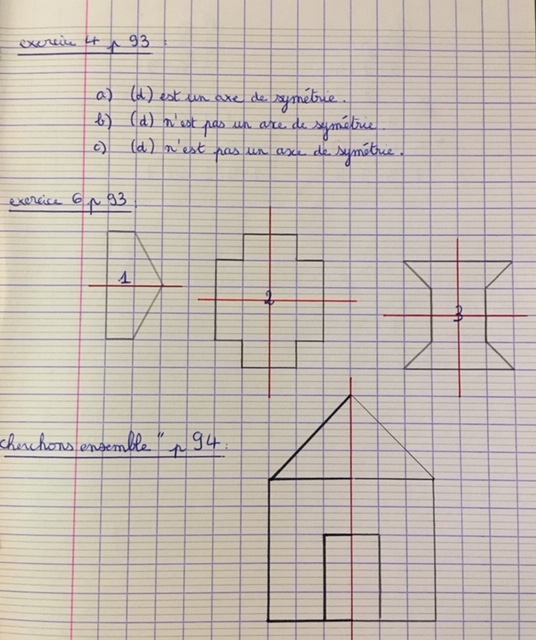 exercice 4 p 93 :
a) (d) est un axe de symétrie.
b) (d) n'est pas un axe de symétrie.
c) (d) n'est pas un axe de symétrie.
exercice 6 p 93 :
1
2
3
cherchons ensemble" p 94 :